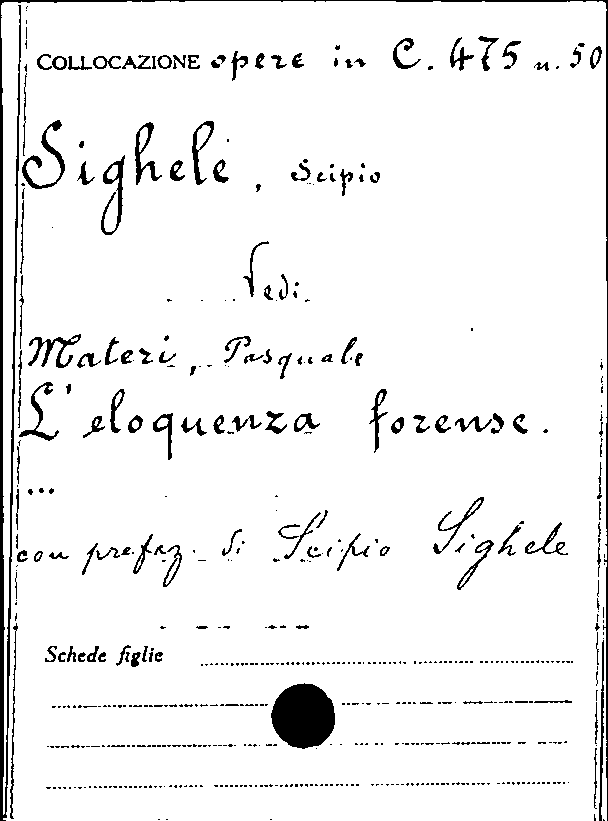 COLLOCAZIONE opere in C. 475 n. 50
Sighele, Scipio
Vedi
Materi, Pasquale
L'eloquenza forense.
...
con prefaz. di Scipio Sighele
Schede figlie